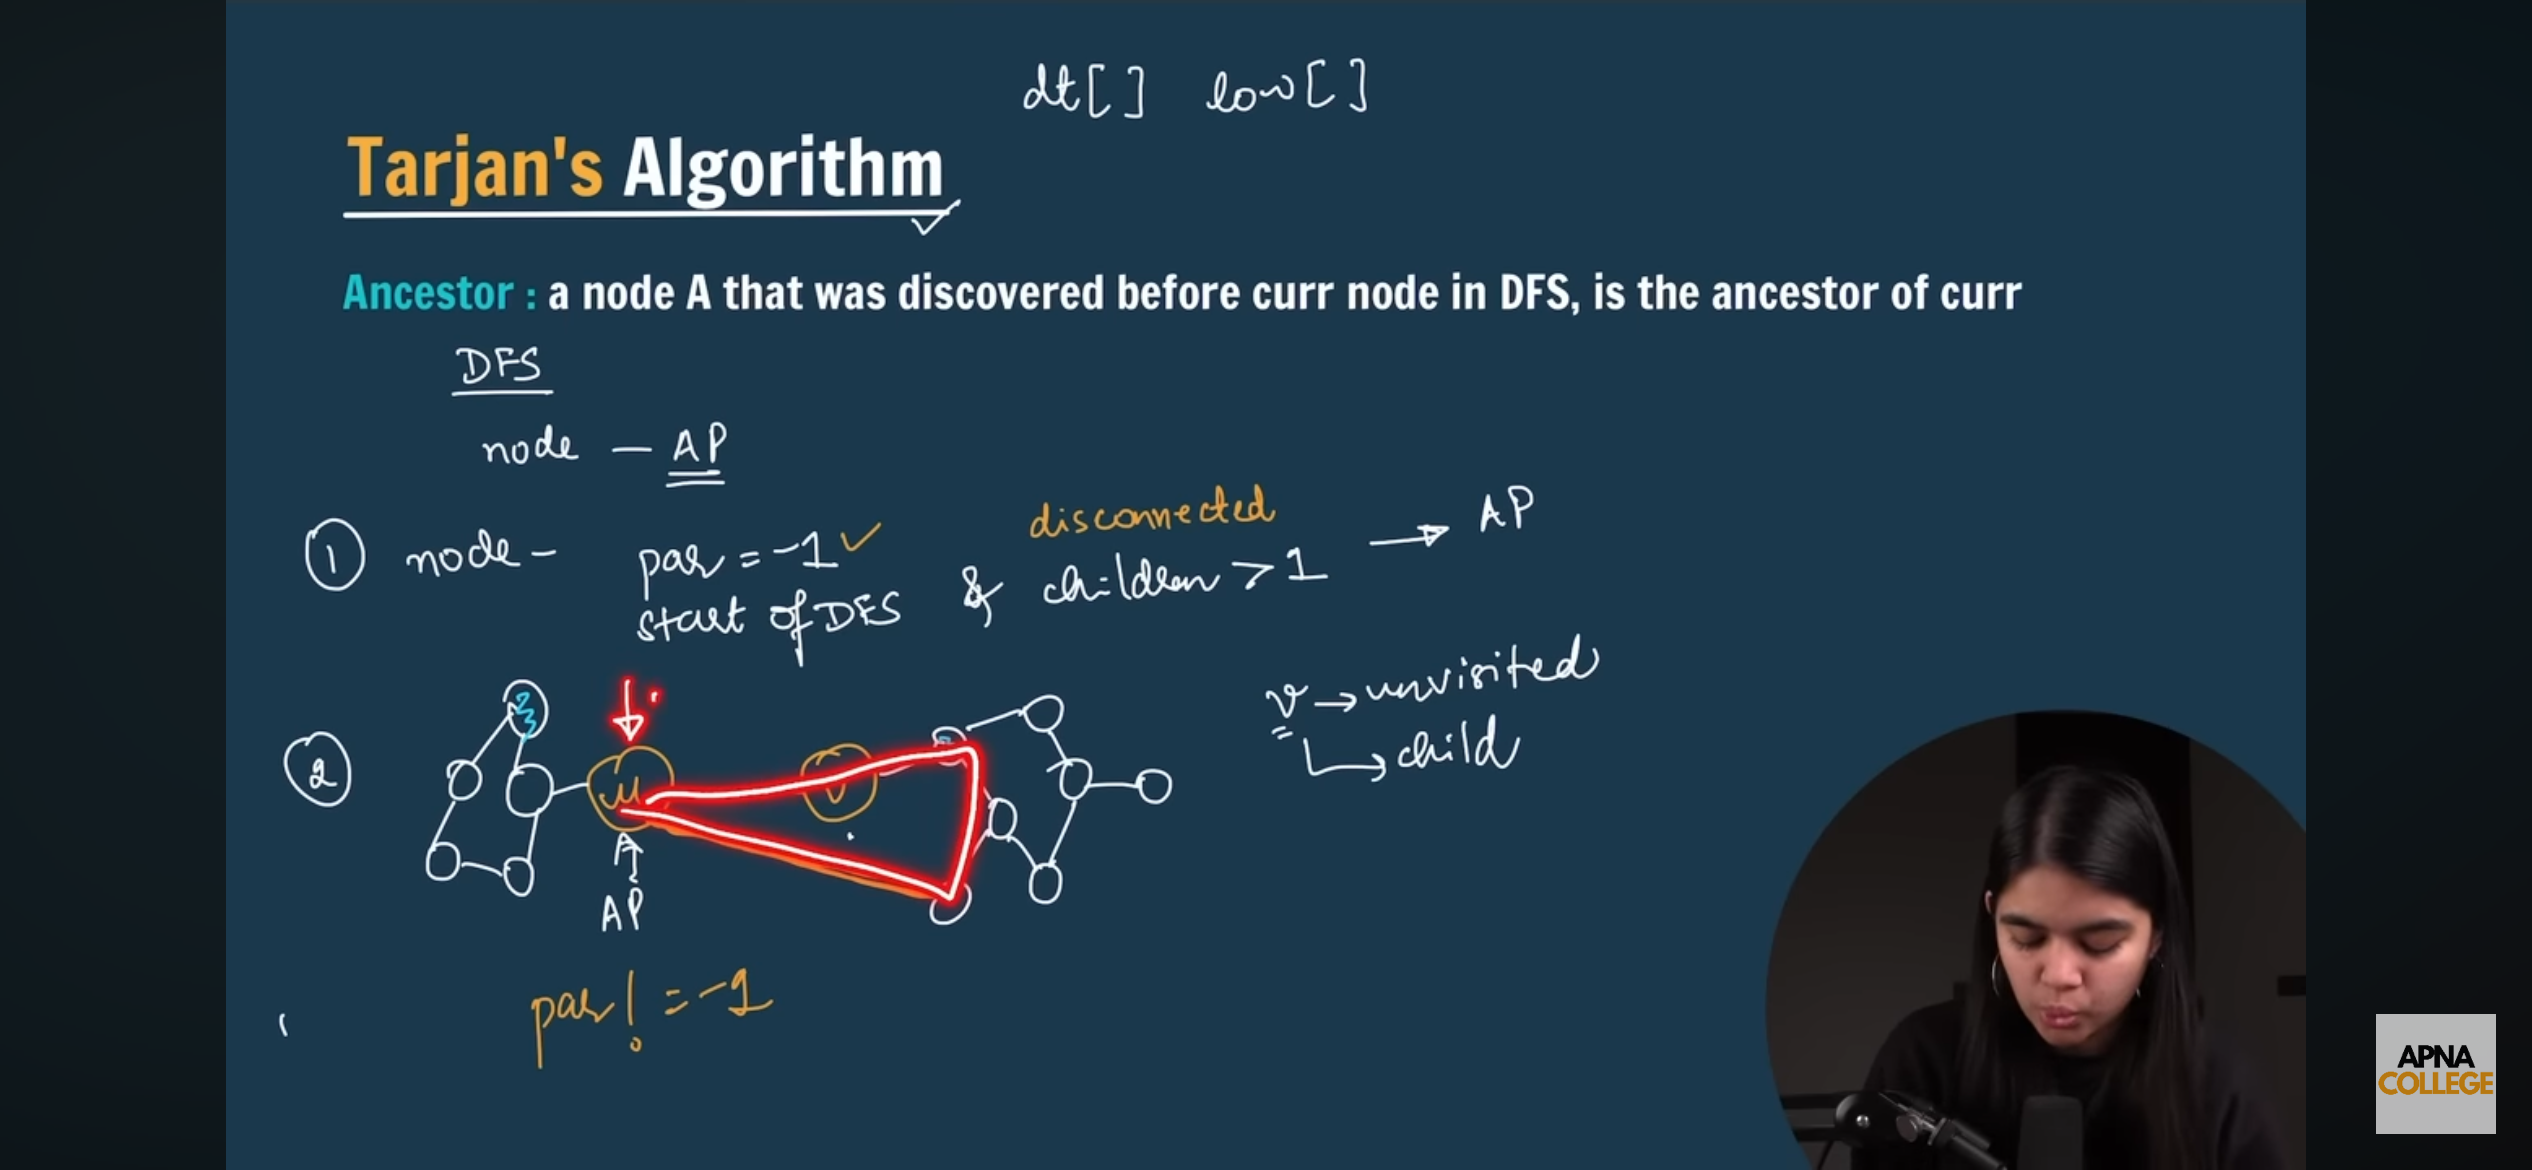 dt[ ] low[ ]
Tarjan's Algorithm
Ancestor : a node A that was discovered before curr node in DFS, is the ancestor of curr
DFS
node - AP
1 node - par = -1 & children > 1 → AP
disconnected
start of DFS
v → unvisited
↳ child
2
u
v
AP
par != -1
APNA
COLLEGE